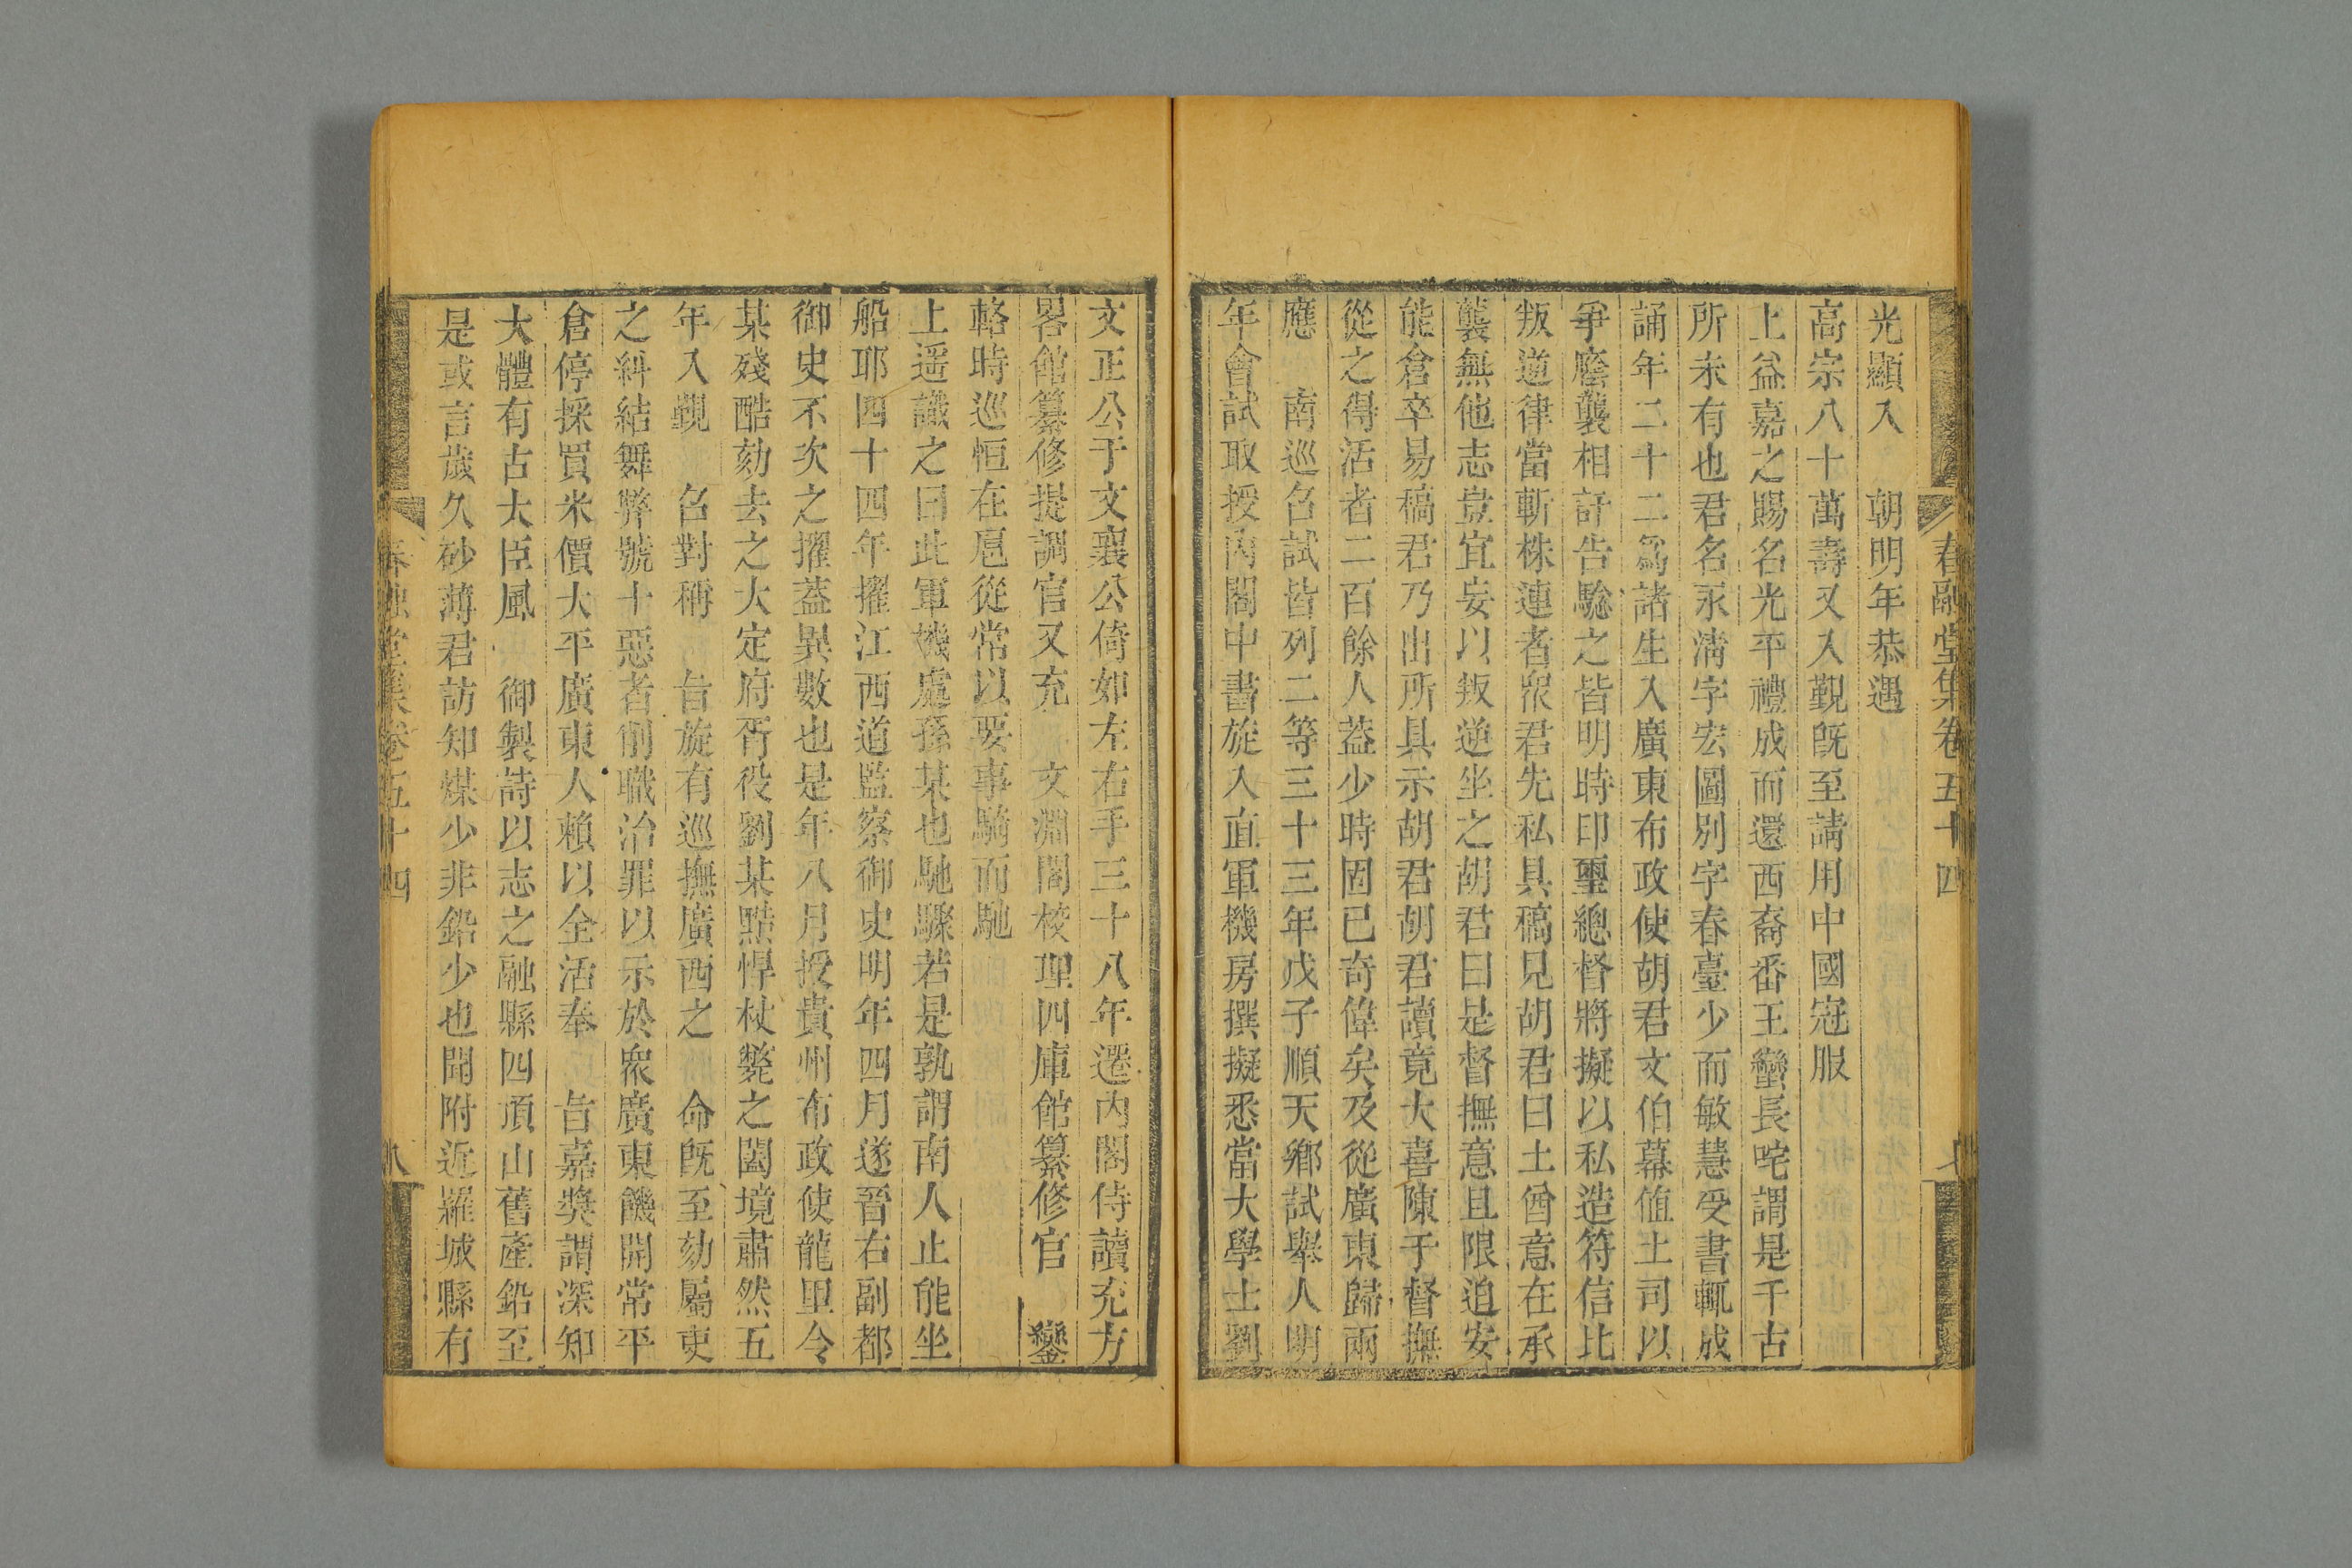 春融堂集卷五十四
光顯入　朝明年恭遇
高宗八十萬壽又入覲既至請用中國冠服
上益嘉之賜名光平禮成而還西裔番王蠻長咤謂是千古
所未有也君名永清字宏圖別字春臺少而敏慧受書輒成
誦年二十二為諸生入廣東布政使胡君文伯幕值土司以
爭廕襲相訐告驗之皆明時印璽總督將擬以私造符信比
叛逆律當斬株連者衆君先私具稿見胡君曰土酋意在承
襲無他志豈宜妄以叛逆坐之胡君曰是督撫意且限迫安
能倉卒易稿君乃出所具示胡君胡君讀竟大喜陳于督撫
從之得活者二百餘人蓋少時固已奇偉矣及從廣東歸兩
應　南巡召試皆列二等三十三年戊子順天鄉試舉人明
年會試取授內閣中書旋入直軍機房撰擬悉當大學士劉
文正公于文襄公倚如左右手三十八年遷內閣侍讀充方
畧館纂修提調官又充　文淵閣校理四庫館纂修官　鑾
輅時巡恒在扈從常以要事騎而馳
上遥識之曰此軍機處孫某也馳驟若是孰謂南人止能坐
船耶四十四年擢江西道監察御史明年四月遂晉右副都
御史不次之擢蓋異數也是年八月授貴州布政使龍里令
某殘酷劾去之大定府胥役劉某黠悍杖斃之闔境肅然五
年入覲　召對稱　旨旋有巡撫廣西之　命既至劾屬吏
之糾結舞弊號十惡者削職治罪以示於衆廣東饑開常平
倉停採買米價大平廣東人賴以全活奉　旨嘉獎謂深知
大體有古大臣風　御製詩以志之融縣四頂山舊產鉛至
是或言歲久砂薄君訪知煤少非鉛少也聞附近羅城縣有
春融堂集卷五十四
八